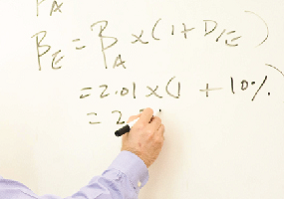 βA
βE = βA x (1 + D/E)
= 2.01 x (1 + 10%
= 2.